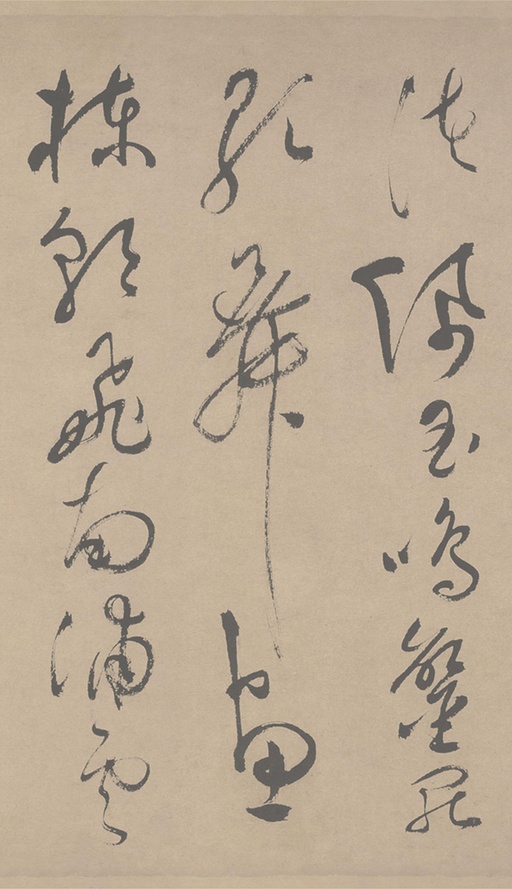 渚佩玉鳴鑾罷
歌舞畫
棟朝飛南浦雲